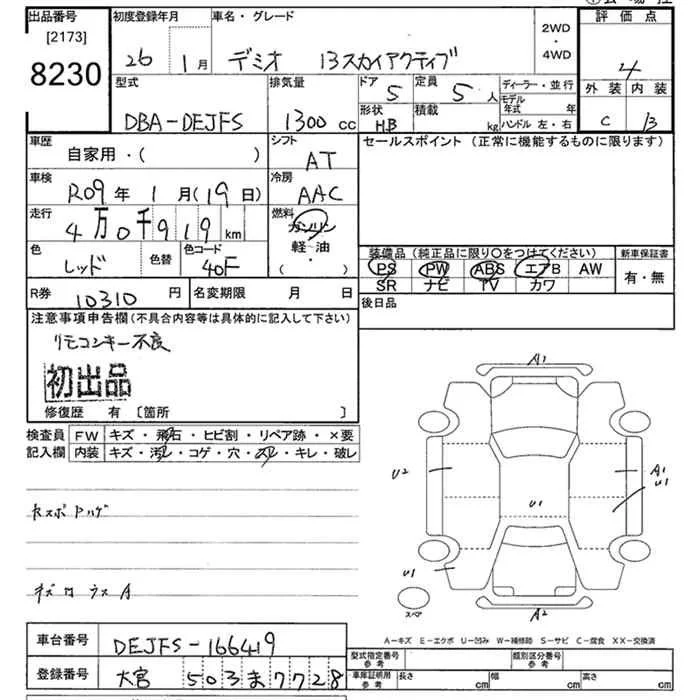 出品番号
[2173]
8230
初度登録年月
26 1月
車名・グレード
デミオ 13スカイアクティブ
2WD
4WD
評価点
4
外装 内装
C B
型式
DBA-DEJFS
排気量
1300 cc
ドア
5
定員
5 人
形状
H.B
積載
kg
ディーラー・並行
モデル年式 年
ハンドル 左・右
車歴
自家用・( )
シフト
AT
セールスポイント (正常に機能するものに限ります)
車検
R09年 1月(19日)
冷房
AAC
走行
4万0千919 km
燃料
ガソリン
軽・油
・
( )
色
レッド
色替
色コード
40F
装備品 (純正品に限り〇をつけてください)
PS PW ABS エアB AW
SR ナビ TV カワ
新車保証書
有・無
R券
10310 円
名変期限 月 日
後日品
注意事項申告欄(不具合内容等は具体的に記入して下さい)
リモコンキー不良
初出品
修復歴 有 〔箇所 〕
検査員
記入欄
FW キズ・飛石・ヒビ割・リペア跡・×要
内装 キズ・汚レ・コゲ・穴・スレ・キレ・破レ
A1
U2
A1
U1
U1
U1
スペア
A2
A-キズ E-エクボ U-凹み W-補修跡 S-サビ C-腐食 XX-交換済
車台番号
DEJFS-166419
登録番号
大宮 503ま7728
型式指定番号
参考
類別区分番号
参考
車庫証明用
参考
長さ cm
幅 cm
高さ cm